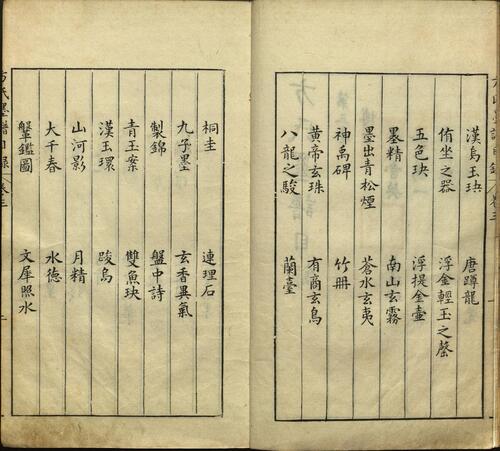 漢烏玉玦 唐蹲龍
侑坐之器 浮金輕玉之磬
五色玦 浮提金壺
墨精 南山玄霧
墨出青松煙 蒼水玄夷
神禹碑 竹冊
黃帝玄珠 有商玄鳥
八龍之駿 蘭臺
桐圭 連理石
九子墨 玄香異氣
製錦 盤中詩
青玉案 雙魚玦
漢玉環 踆烏
山河影 月精
大千春 水德
鑿鑑圖 文犀照水
方氏墨譜目錄 卷三